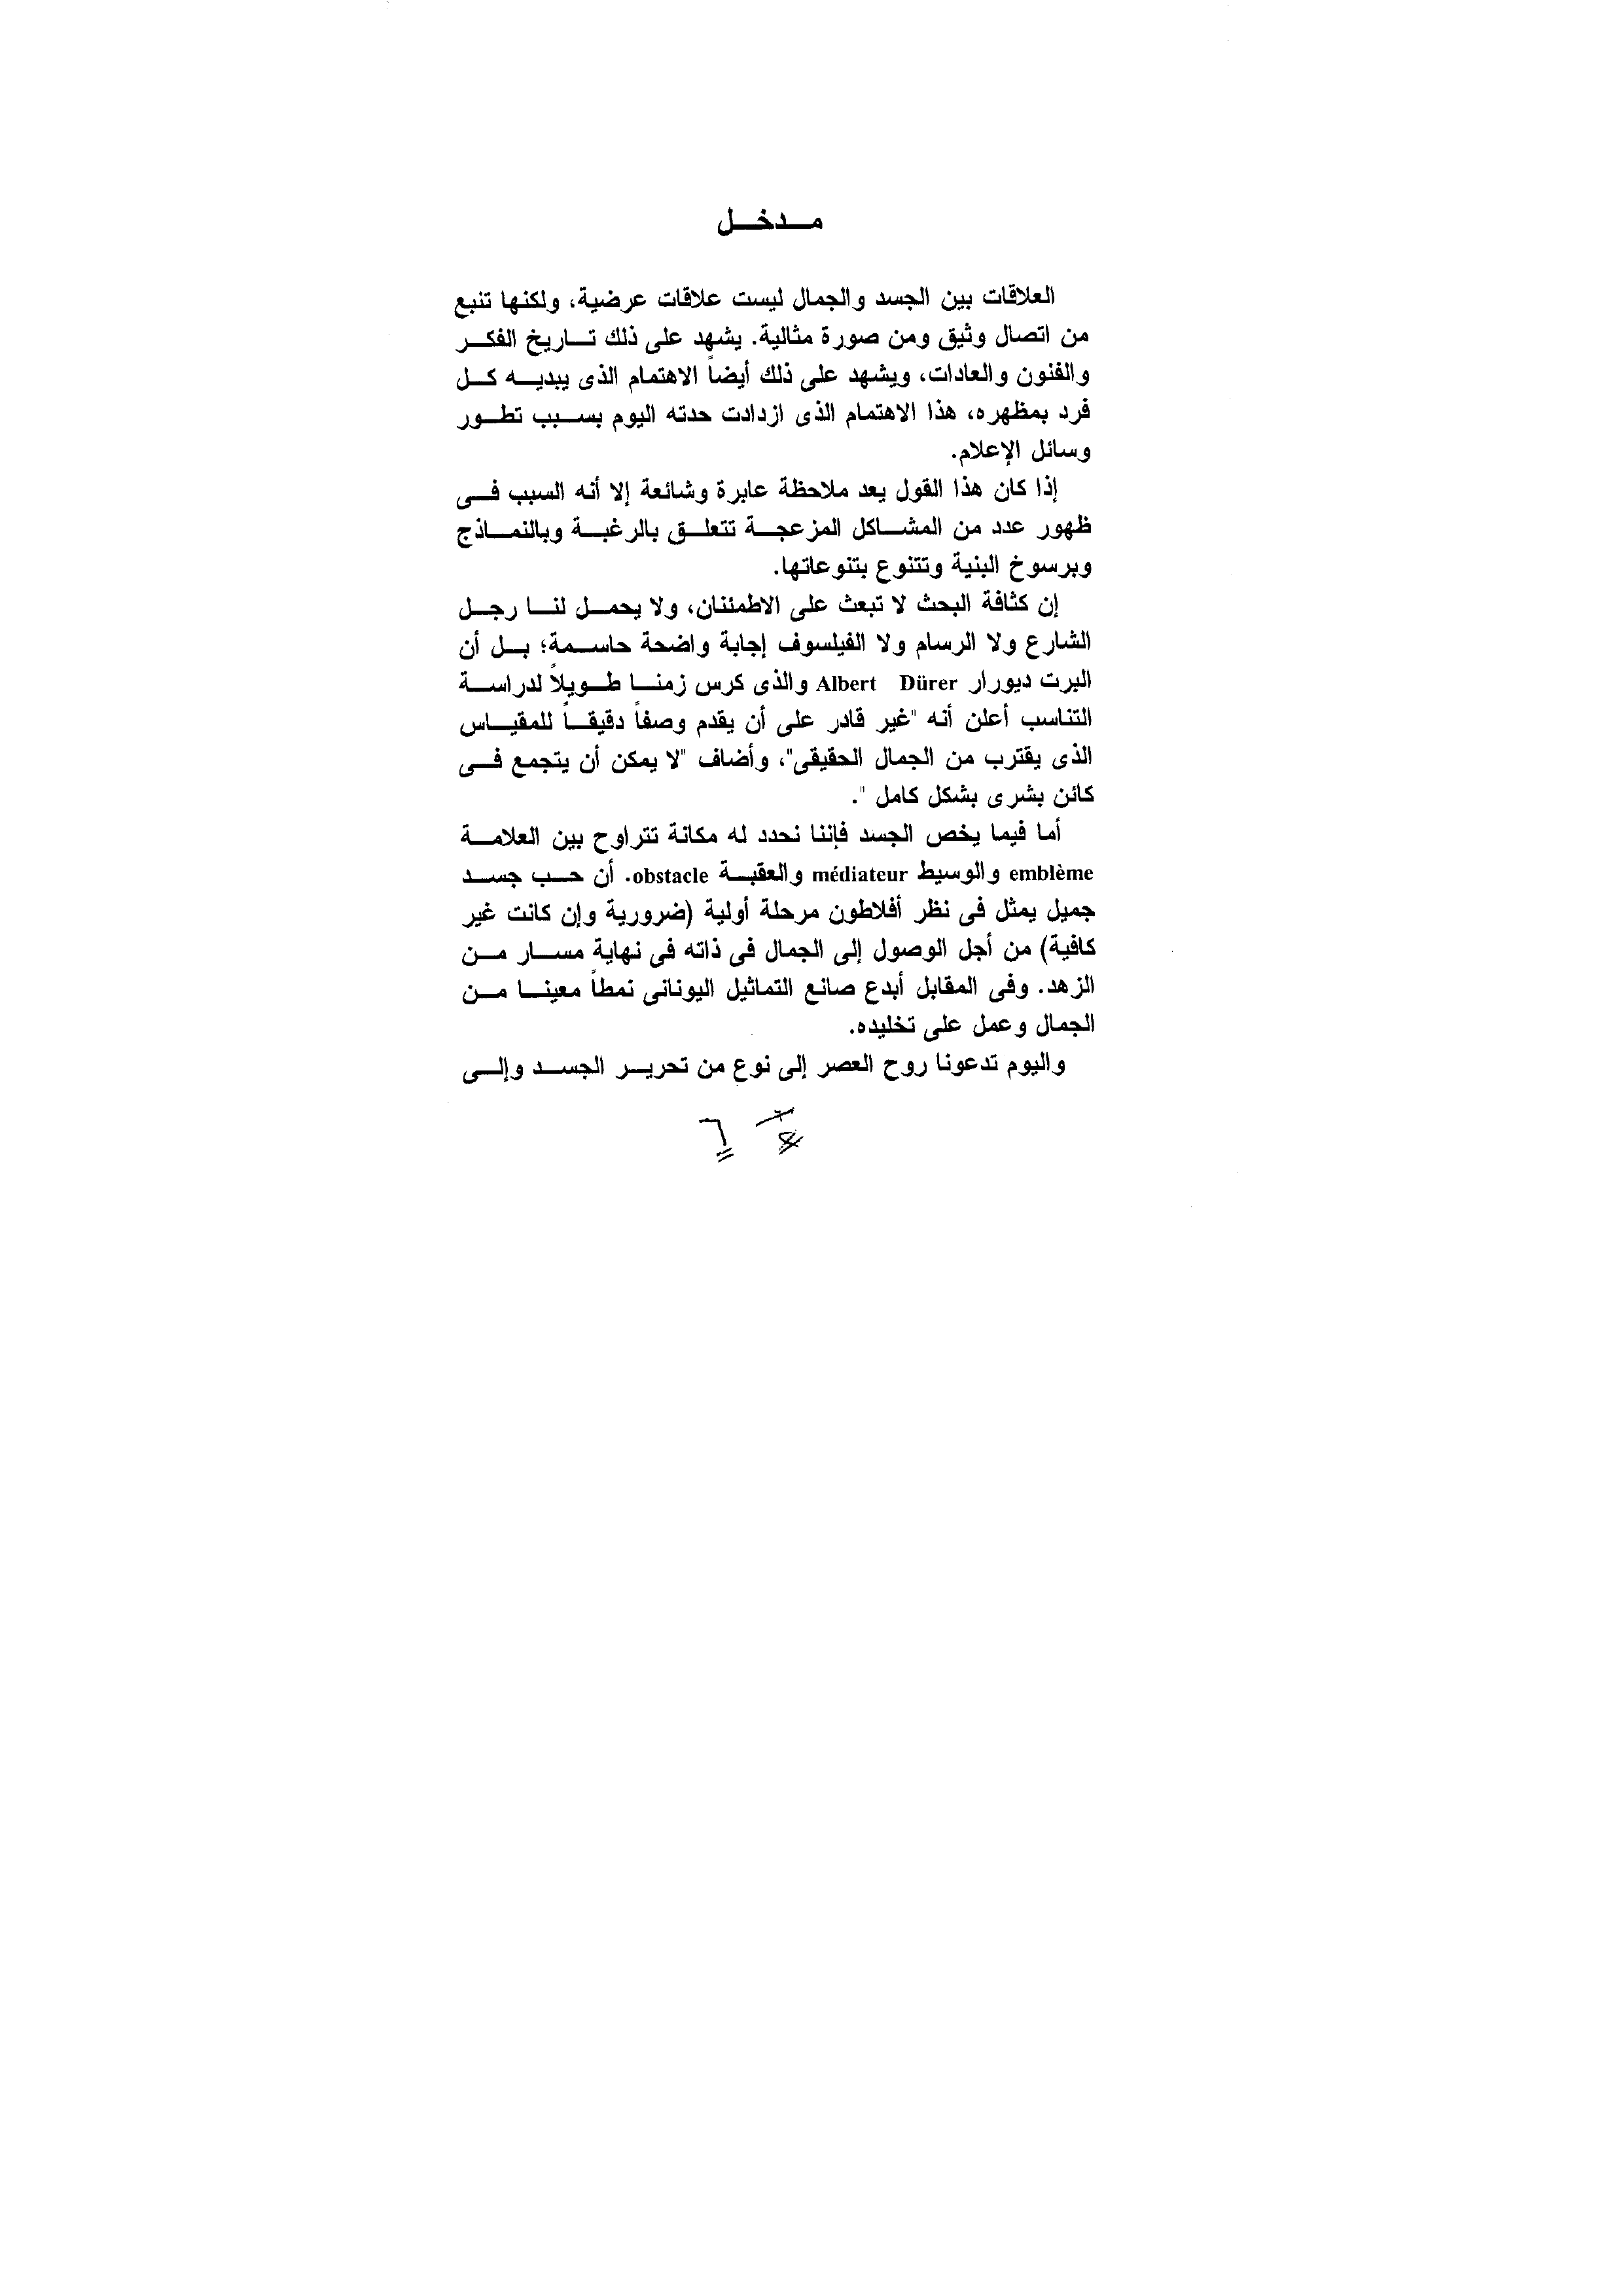 مدخل
العلاقات بين الجسد والجمال ليست علاقات عرضية، ولكنها تنبع
من اتصال وثيق ومن صورة مثالية. يشهد على ذلك تاريخ الفكر
والفنون والعادات، ويشهد على ذلك أيضاً الاهتمام الذى يبديه كل
فرد بمظهره، هذا الاهتمام الذى ازدادت حدته اليوم بسبب تطور
وسائل الإعلام.
إذا كان هذا القول يعد ملاحظة عابرة وشائعة إلا أنه السبب فى
ظهور عدد من المشاكل المزعجة تتعلق بالرغبة وبالنماذج
وبرسوخ البنية وتتنوع بتنوعاتها.
إن كثافة البحث لا تبعث على الاطمئنان، ولا يحمل لنا رجل
الشارع ولا الرسام ولا الفيلسوف إجابة واضحة حاسمة؛ بل أن
البرت ديورار Albert Dürer والذى كرس زمنا طويلاً لدراسة
التناسب أعلن أنه "غير قادر على أن يقدم وصفاً دقيقاً للمقياس
الذى يقترب من الجمال الحقيقى"، وأضاف "لا يمكن أن يتجمع فى
كائن بشرى بشكل كامل ".
أما فيما يخص الجسد فإننا نحدد له مكانة تتراوح بين العلامة
emblème والوسيط médiateur والعقبة obstacle. أن حب جسد
جميل يمثل فى نظر أفلاطون مرحلة أولية (ضرورية وإن كانت غير
كافية) من أجل الوصول إلى الجمال فى ذاته فى نهاية مسار من
الزهد. وفى المقابل أبدع صانع التماثيل اليونانى نمطاً معينا من
الجمال وعمل على تخليده.
واليوم تدعونا روح العصر إلى نوع من تحرير الجسد وإلى
٦